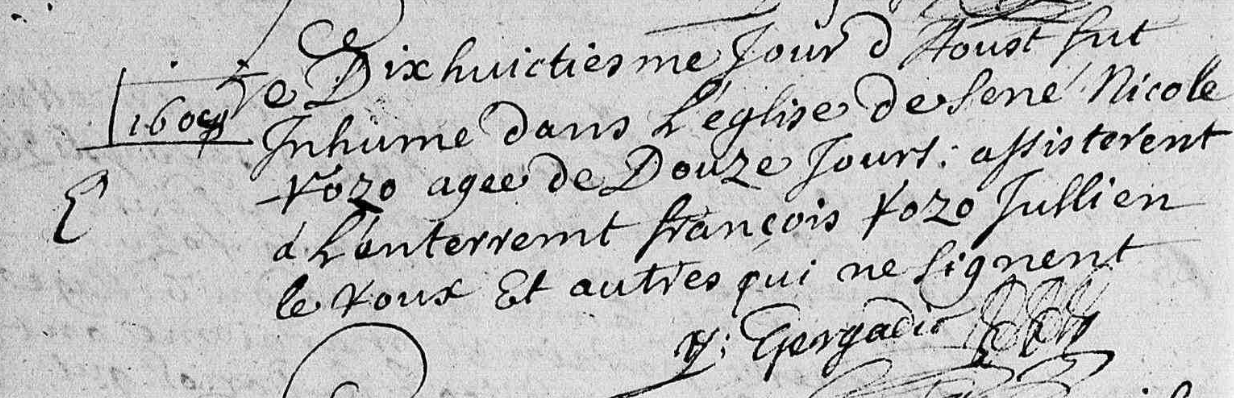 Le Dixhuictiesme Jour d Aoust fut
Inhume dans L'eglise de Sené Nicole
rozo agee de Douze Jours : assisterent
a L'enterremt françois rozo Jullien
le roux Et autres qui ne signent